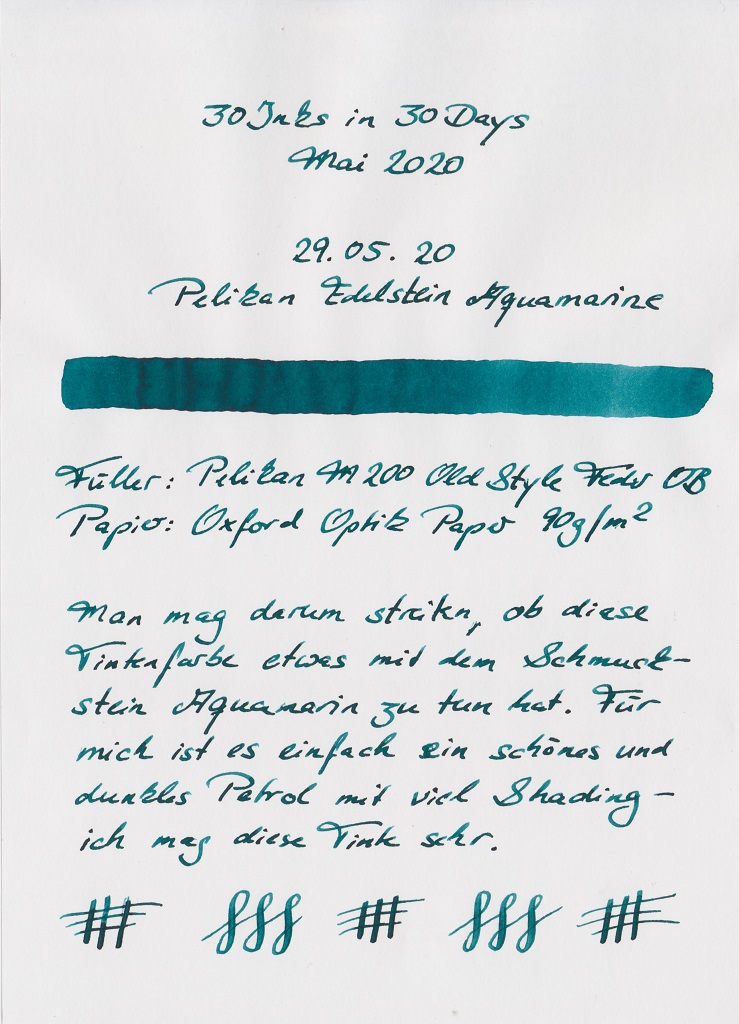 30 Inks in 30 Days
Mai 2020
29.05.20
Pelikan Edelstein Aquamarine
Füller: Pelikan M200 Old Style Feder OB
Papier: Oxford Optik Paper 90g/m²
Man mag darum streiten, ob diese
Tintenfarbe etwas mit dem Schmuck-
stein Aquamarin zu tun hat. Für
mich ist es einfach ein schönes und
dunkles Petrol mit viel Shading –
ich mag diese Tinte sehr.